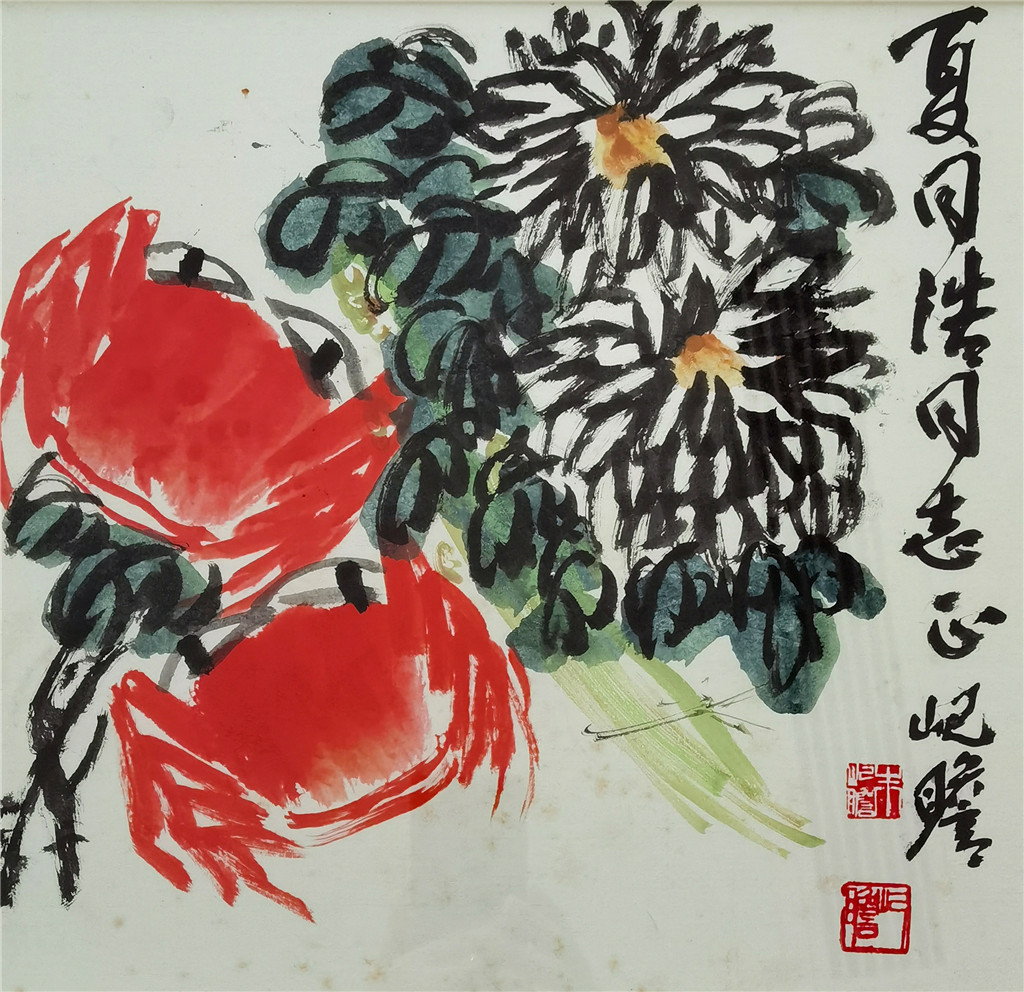 夏同浩同志正 屺瞻
朱屺瞻
屺瞻